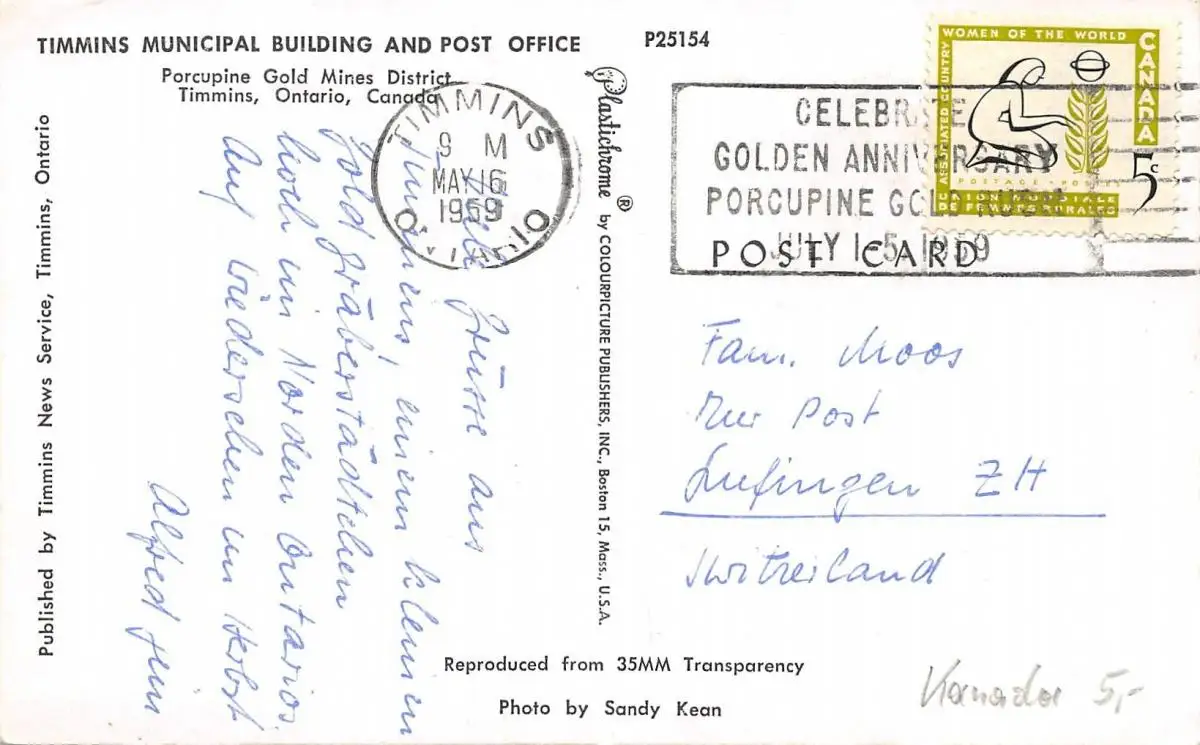 TIMMINS MUNICIPAL BUILDING AND POST OFFICE
Porcupine Gold Mines District
Timmins, Ontario, Canada
P25154
Published by Timmins News Service, Timmins, Ontario
Plastichrome ® by COLOURPICTURE PUBLISHERS, INC., Boston 15, Mass., U.S.A.
TIMMINS
9 M
MAY 16
1959
ONTARIO
CELEBRATE
GOLDEN ANNIVERSARY
PORCUPINE GOLD
JULY 1-5 1959
WOMEN OF THE WORLD
ASSOCIATED COUNTRY
CANADA
5c
POSTAGE POSTES
UNION MONDIALE
DE FEMMES RURALES
POST CARD
Liebe Grüsse aus
Timmins, einem kleinen
Goldgräberstädtchen
hoch im Norden Ontarios.
Auf Wiedersehen im Herbst
Alfred
Fam. Moos
Zur Post
Lufingen ZH
Switzerland
Reproduced from 35MM Transparency
Photo by Sandy Kean
Kanada 5,-